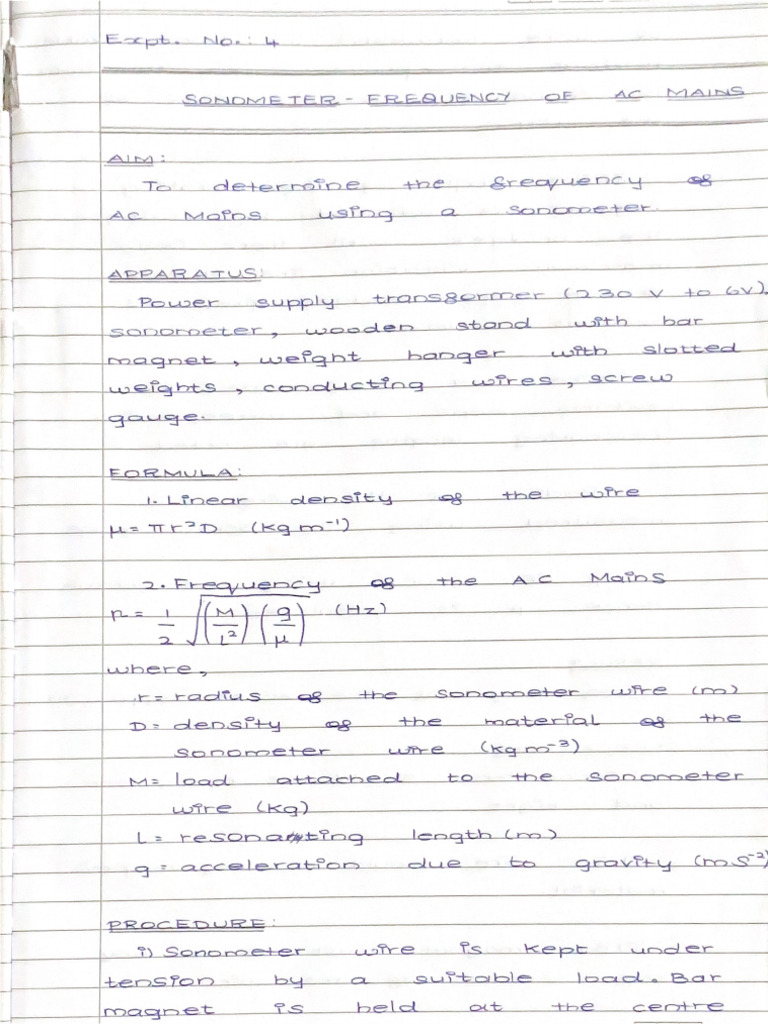 Expt. No.: 4
SONOMETER - FREQUENCY OF AC MAINS
AIM:
To determine the frequency of
AC Mains using a sonometer.
APPARATUS:
Power supply transformer (230 V to 6V),
sonometer, wooden stand with bar
magnet, weight hanger with slotted
weights, conducting wires, screw
gauge.
FORMULA:
1. Linear density of the wire
μ = πr²D (kg m⁻¹)
2. Frequency of the AC Mains
n = 1/2 √((M/L²)(g/μ)) (Hz)
where,
r = radius of the sonometer wire (m)
D = density of the material of the
sonometer wire (kg m⁻³)
M = load attached to the sonometer
wire (kg)
L = resonating length (m)
g = acceleration due to gravity (ms⁻²)
PROCEDURE:
i) Sonometer wire is kept under
tension by a suitable load. Bar
magnet is held at the centre